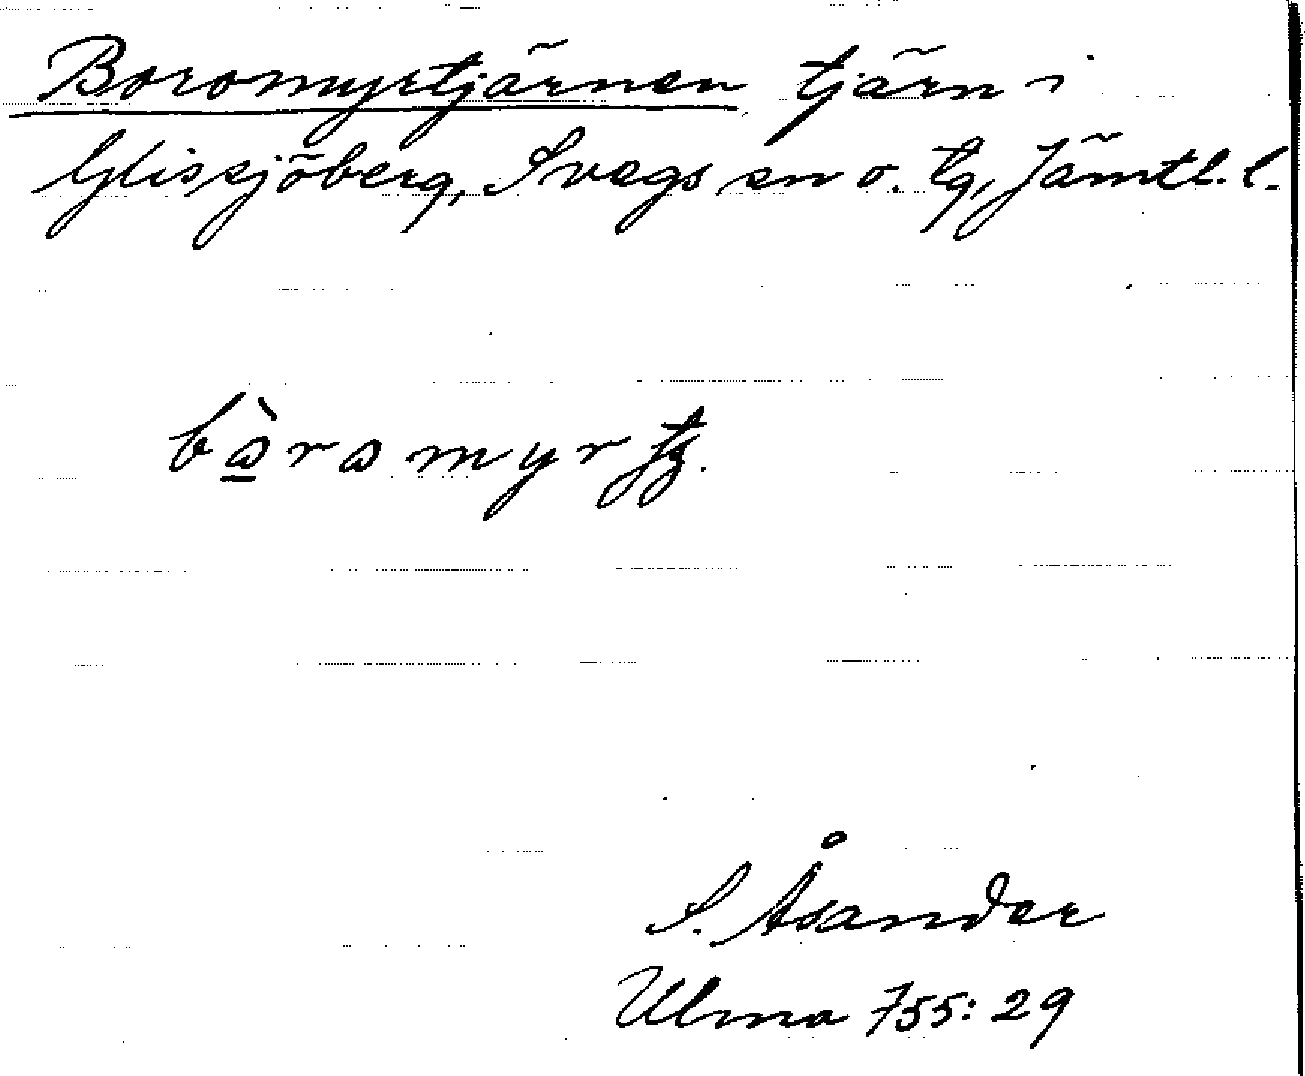 Boromyrtjärnen tjärn i
Glissjöberg, Svegs sn o. tg, Jämtl. l.
bòromyr
S. Åsander
Ulma 755:29